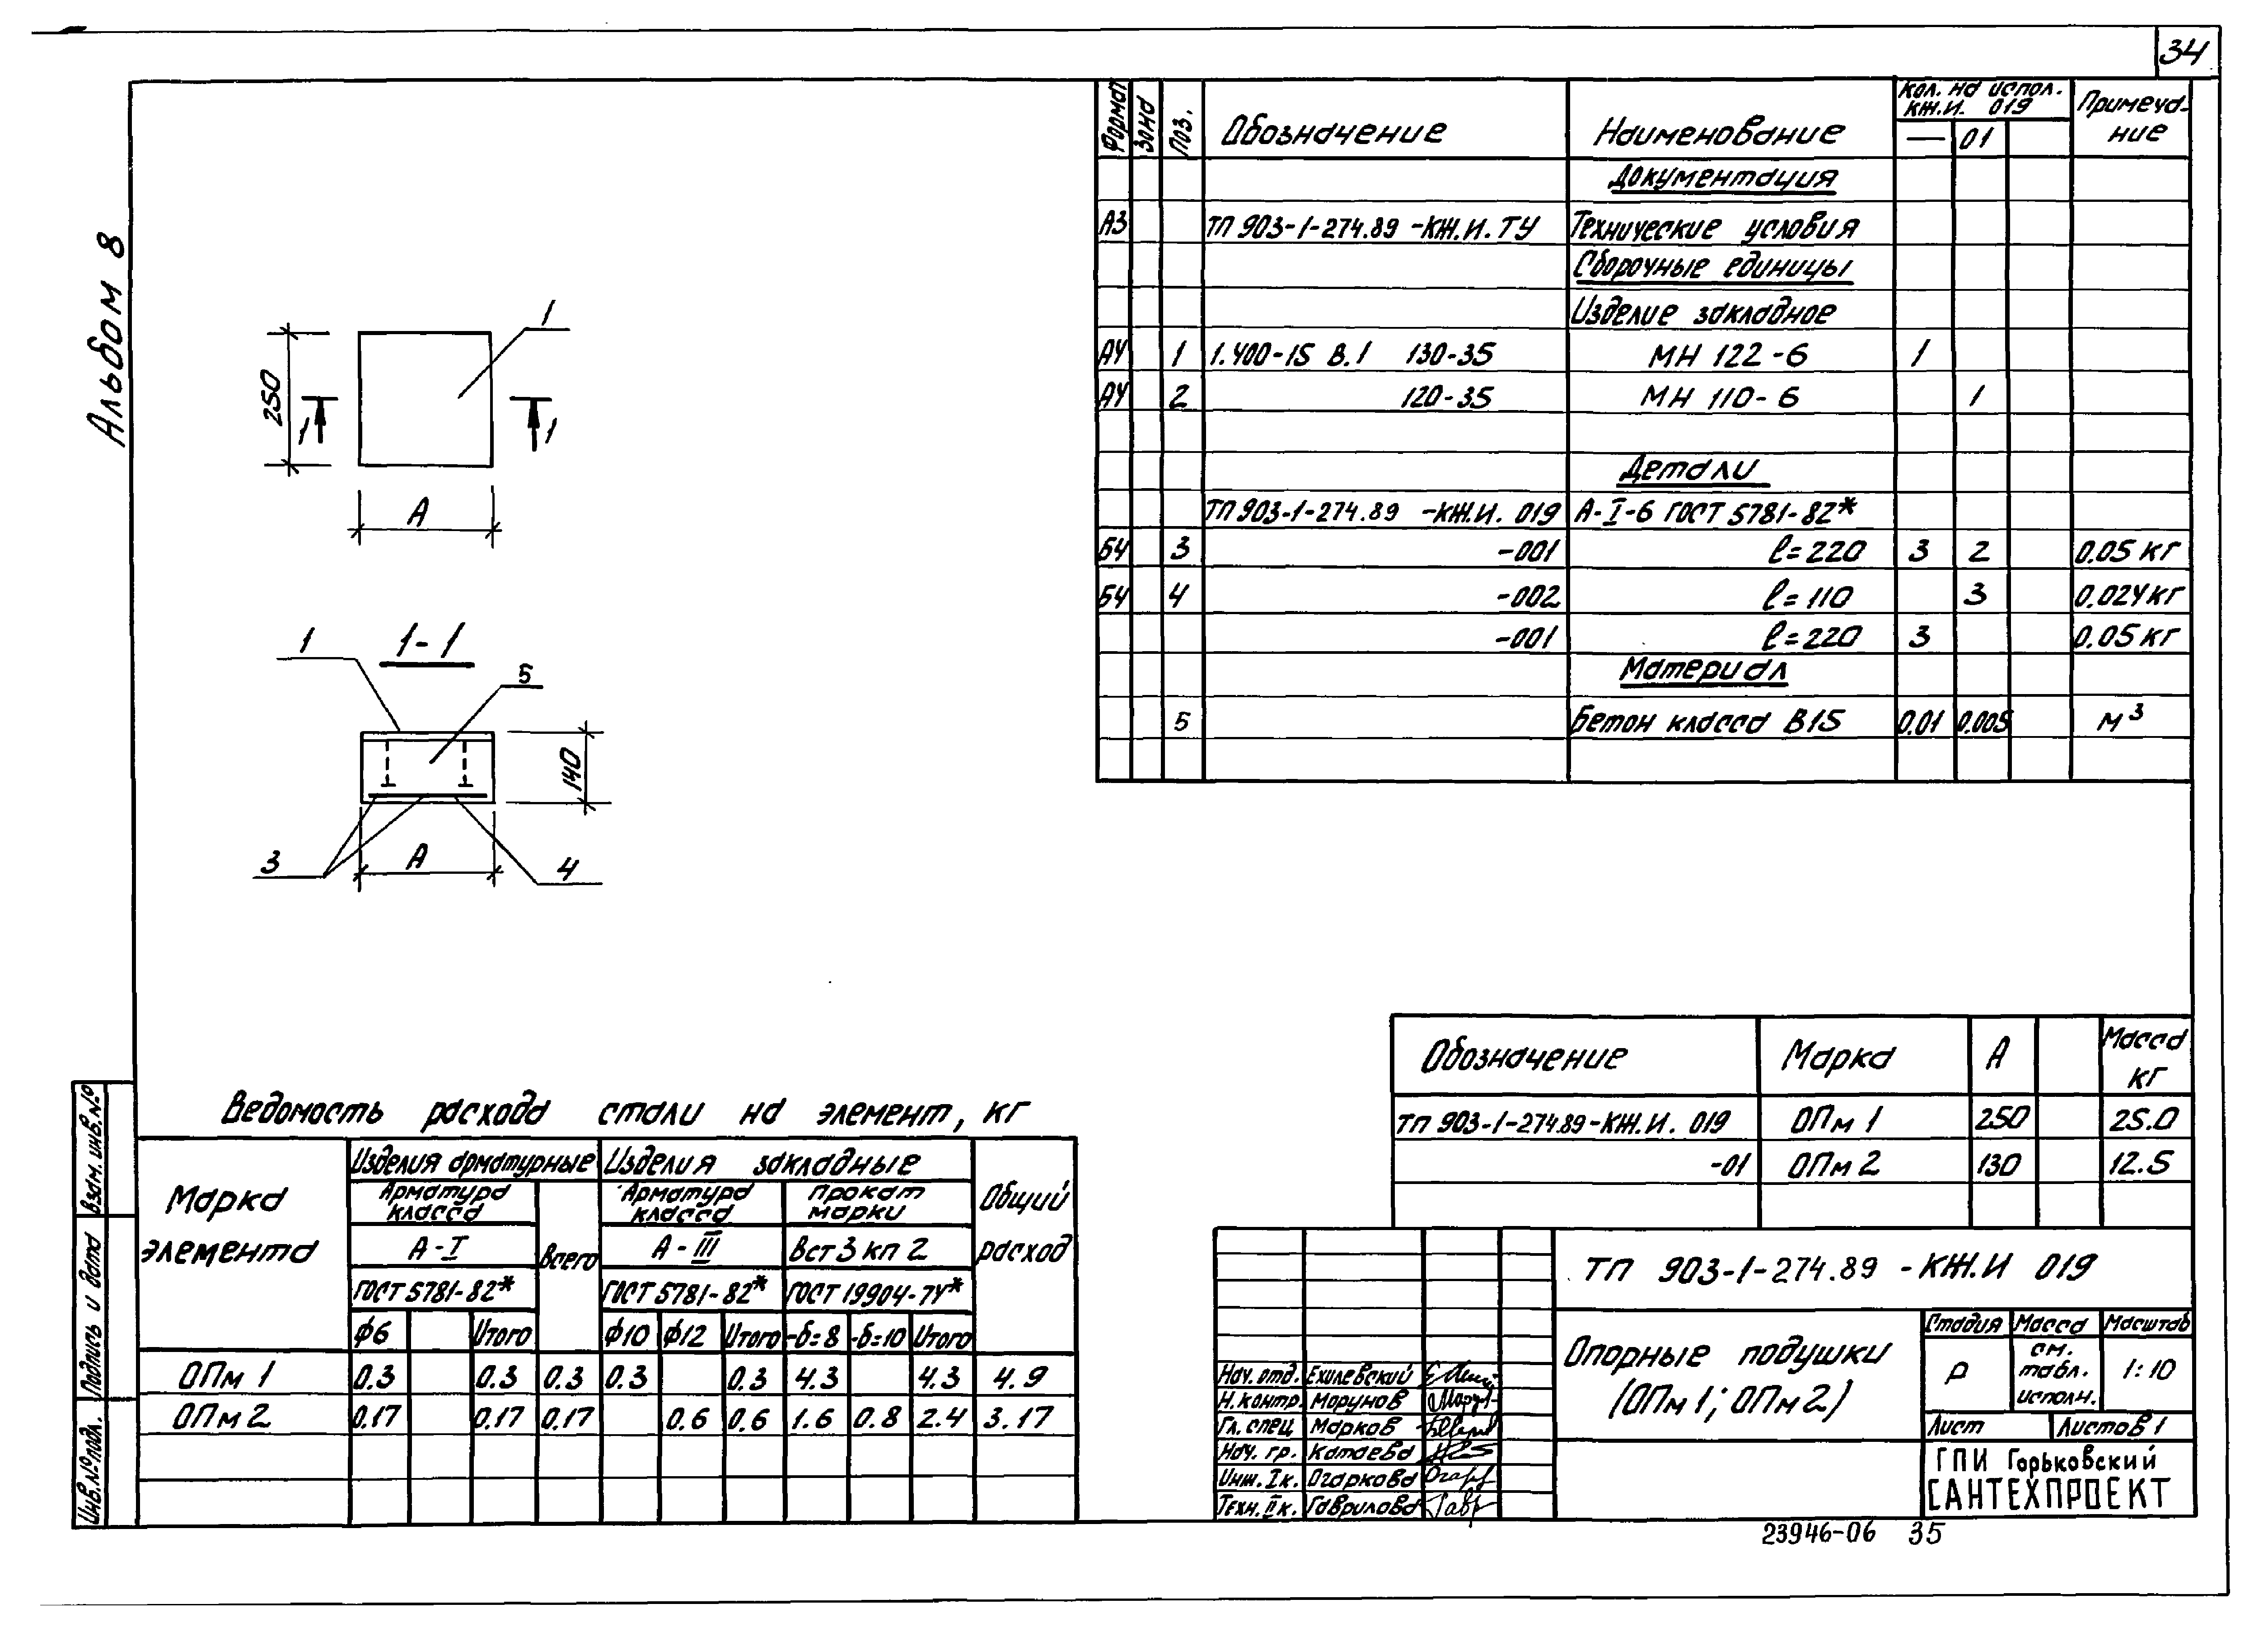 34
Альбом 8
Формат Зона Поз. Обозначение Наименование Кол. на испол. КЖ.И. 019 Примеча-ние
— 01
Документация
А3 ТП 903-1-274.89 -КЖ.И.ТУ Технические условия
Сборочные единицы
Изделие закладное
А4 1 1.400-15 В.1 130-35 МН 122-6 1
А4 2 120-35 МН 110-6 1
Детали
ТП 903-1-274.89 -КЖ.И. 019 А-I-6 ГОСТ 5781-82*
Б4 3 -001 ℓ=220 3 2 0.05 кг
Б4 4 -002 ℓ=110 3 0.024кг
-001 ℓ=220 3 0.05 кг
Материал
5 Бетон класса В15 0.01 0.005 м³
1
250
1 1
А
1-1
1
5
140
3 А 4
Обозначение Марка А Масса кг
ТП 903-1-274.89-КЖ.И. 019 ОПм 1 250 25.0
-01 ОПм 2 130 12.5
Ведомость расхода стали на элемент, кг
Марка элемента Изделия арматурные Изделия закладные Общий расход
Арматура класса Всего Арматура класса Прокат марки
А-I А-III Вст3кп2
ГОСТ 5781-82* ГОСТ 5781-82* ГОСТ 19904-74*
ф6 Итого ф10 ф12 Итого -δ=8 -δ=10 Итого
ОПм 1 0.3 0.3 0.3 0.3 0.3 4.3 4.3 4.9
ОПм 2 0.17 0.17 0.17 0.6 0.6 1.6 0.8 2.4 3.17
Взам. инв.№
Подпись и дата
Инв.№ подл.
ТП 903-1-274.89 -КЖ.И 019
Опорные подушки
(ОПм 1; ОПм 2)
Стадия Масса Масштаб
Р см. табл. исполн. 1:10
Лист Листов 1
ГПИ Горьковский
САНТЕХПРОЕКТ
Нач. отд. Ехилевский
Н.контр. Морунов
Гл. спец Марков
Нач. гр. Катаева
Инж. Iк. Огаркова
Техн. IIк. Гаврилова
23946-06 35